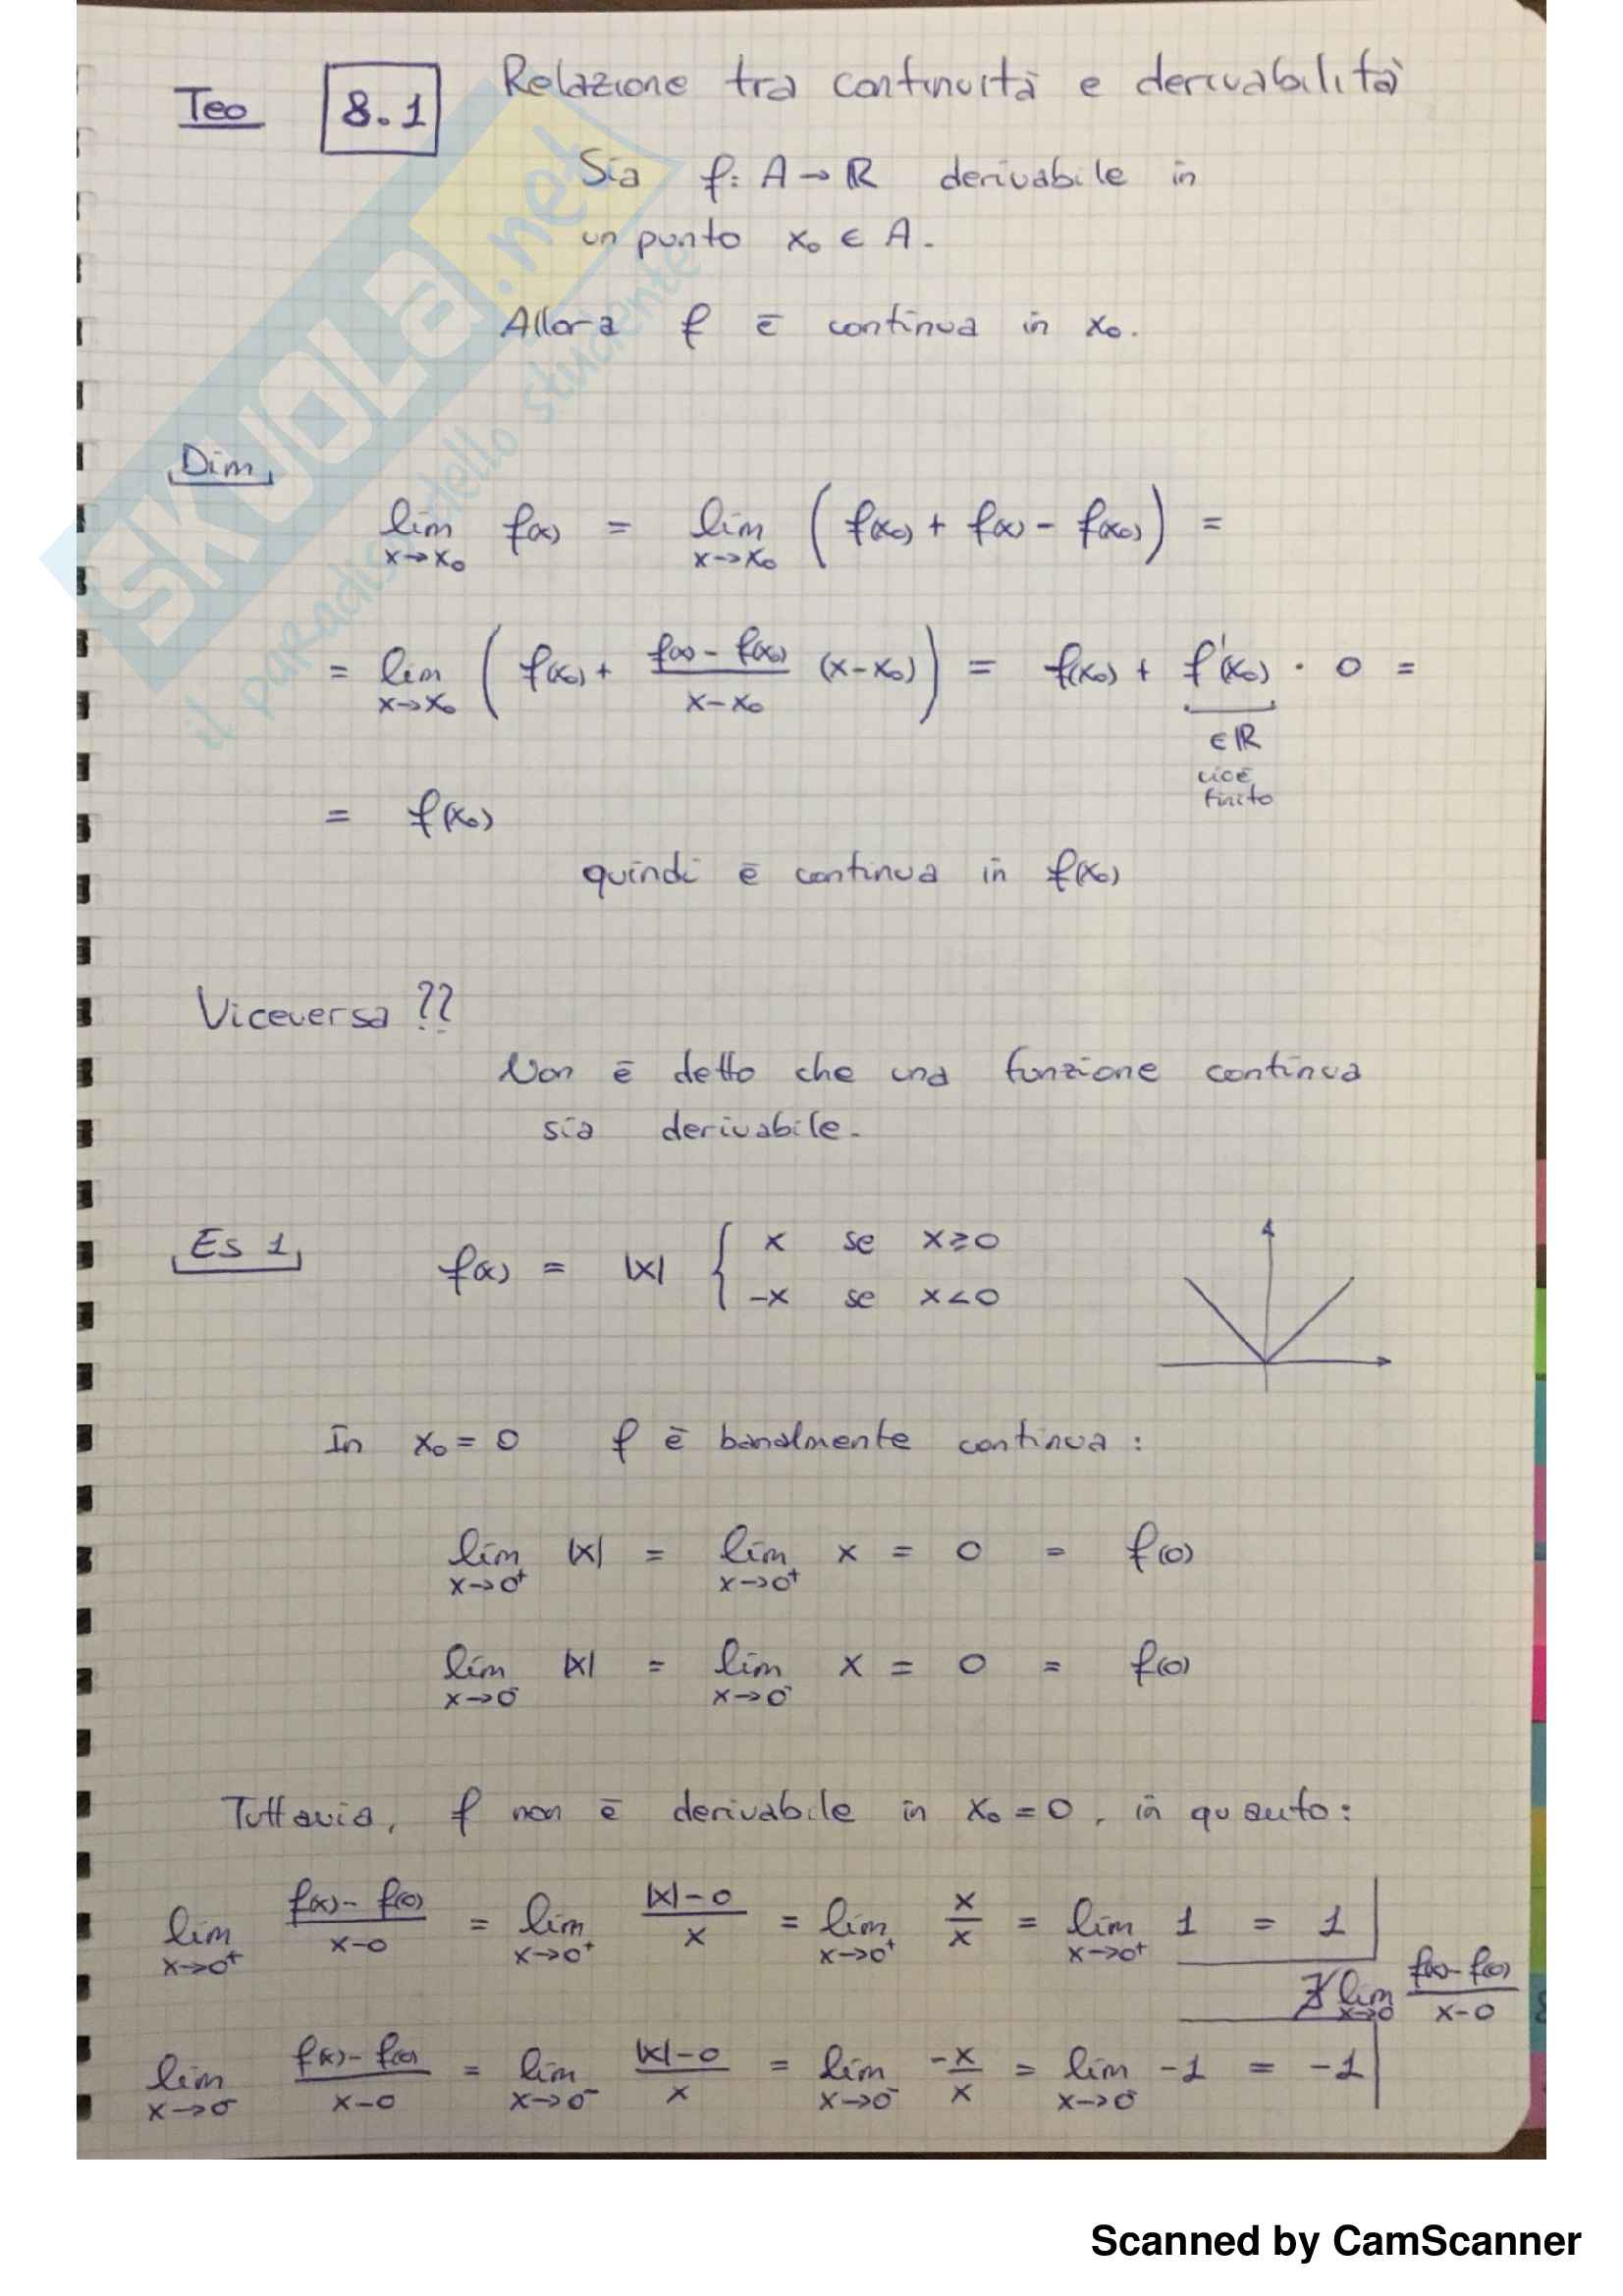 Teo 8.1 Relazione tra continuità e derivabilità
Sia f: A → ℝ derivabile in
un punto x₀ ∈ A.
Allora f è continua in x₀.
Dim
lim x→x₀ f(x) = lim x→x₀ ( f(x₀) + f(x) - f(x₀) ) =
= lim x→x₀ ( f(x₀) + (f(x) - f(x₀))/(x-x₀) (x-x₀) ) = f(x₀) + f'(x₀) · 0 =
∈ ℝ
cioè
finito
= f(x₀)
quindi è continua in f(x₀)
Viceversa ??
Non è detto che una funzione continua
sia derivabile.
Es 1 f(x) = |x| { x se x ≥ 0
-x se x < 0
In x₀ = 0 f è banalmente continua :
lim x→0⁺ |x| = lim x→0⁺ x = 0 = f(0)
lim x→0⁻ |x| = lim x→0⁻ x = 0 = f(0)
Tuttavia, f non è derivabile in x₀ = 0, in quanto :
lim x→0⁺ (f(x) - f(0))/(x-0) = lim x→0⁺ (|x| - 0)/x = lim x→0⁺ x/x = lim x→0⁺ 1 = 1
∄ lim x→0 (f(x) - f(0))/(x-0)
lim x→0⁻ (f(x) - f(0))/(x-0) = lim x→0⁻ (|x| - 0)/x = lim x→0⁻ -x/x = lim x→0⁻ -1 = -1
SKUOLA.net
il paradiso dello studente
Scanned by CamScanner